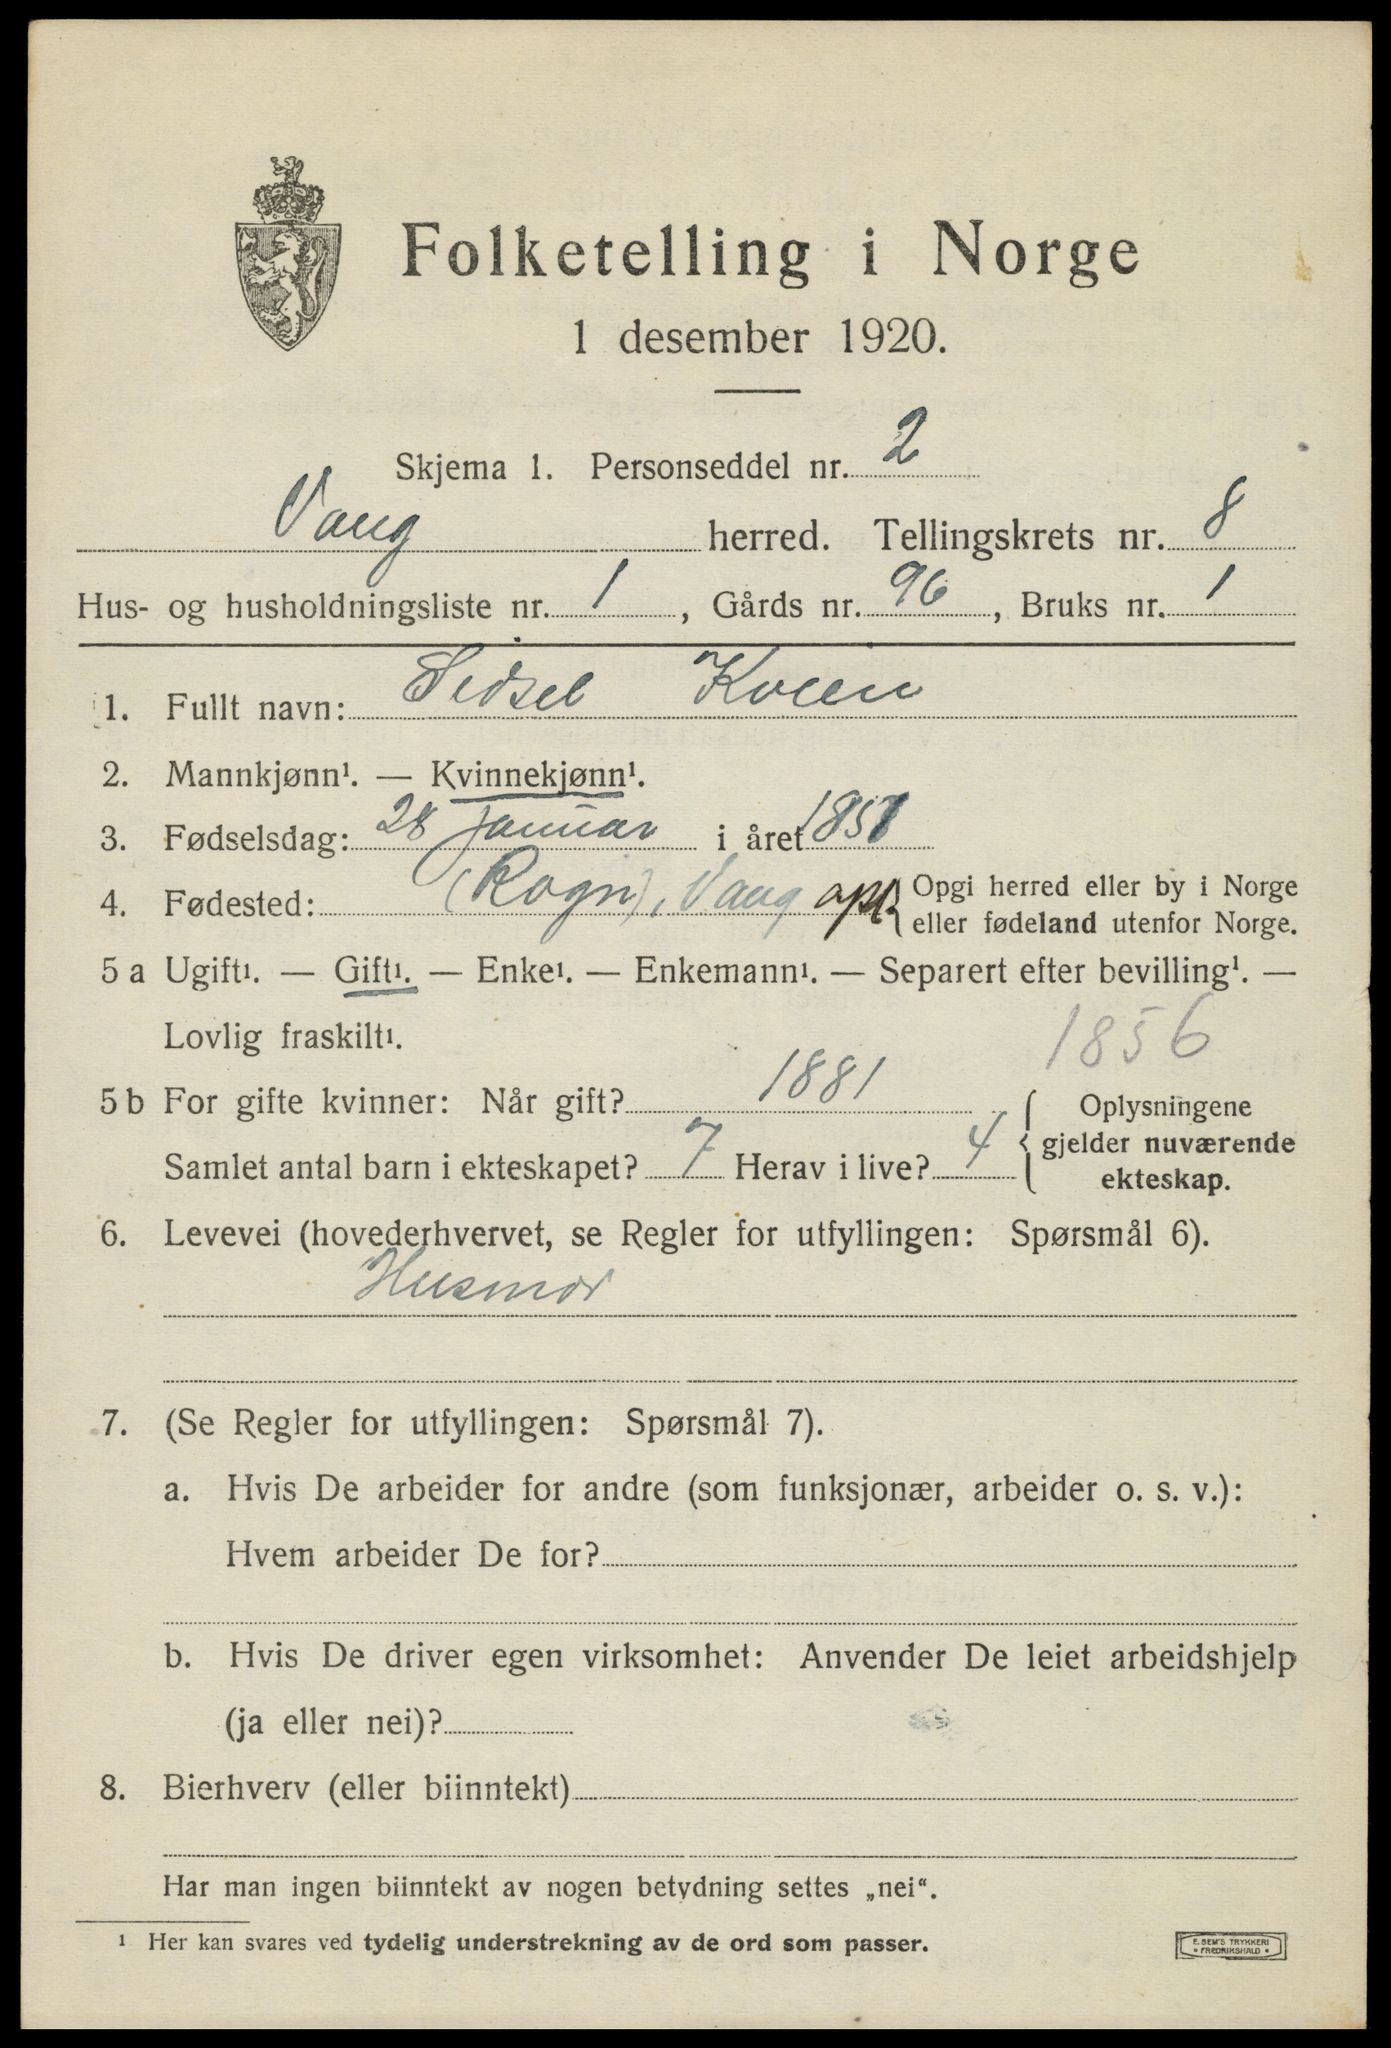 Folketelling i Norge
1 desember 1920.
Skjema 1. Personseddel nr. 2
Vang herred. Tellingskrets nr. 8
Hus- og husholdningsliste nr. 1, Gårds nr. 96, Bruks nr. 1
1. Fullt navn: Sidsel Kvien
2. Mannkjønn¹. — Kvinnekjønn¹.
3. Fødselsdag: 28 januar i året 1857
4. Fødested: (Rogn), Vang opl. { Opgi herred eller by i Norge
eller fødeland utenfor Norge.
5 a Ugift¹. — Gift¹. — Enke¹. — Enkemann¹. — Separert efter bevilling¹. —
Lovlig fraskilt¹.
1856
5 b For gifte kvinner: Når gift? 1881
Samlet antal barn i ekteskapet? 7 Herav i live? 4
{ Oplysningene
gjelder nuværende
ekteskap.
6. Levevei (hovederhvervet, se Regler for utfyllingen: Spørsmål 6).
Husmor
7. (Se Regler for utfyllingen: Spørsmål 7).
a. Hvis De arbeider for andre (som funksjonær, arbeider o. s. v.):
Hvem arbeider De for?
b. Hvis De driver egen virksomhet: Anvender De leiet arbeidshjelp
(ja eller nei)?
8. Bierhverv (eller biinntekt)
Har man ingen biinntekt av nogen betydning settes „nei“.
¹ Her kan svares ved tydelig understrekning av de ord som passer.
E. SEM'S TRYKKERI
• FREDRIKSHALD •